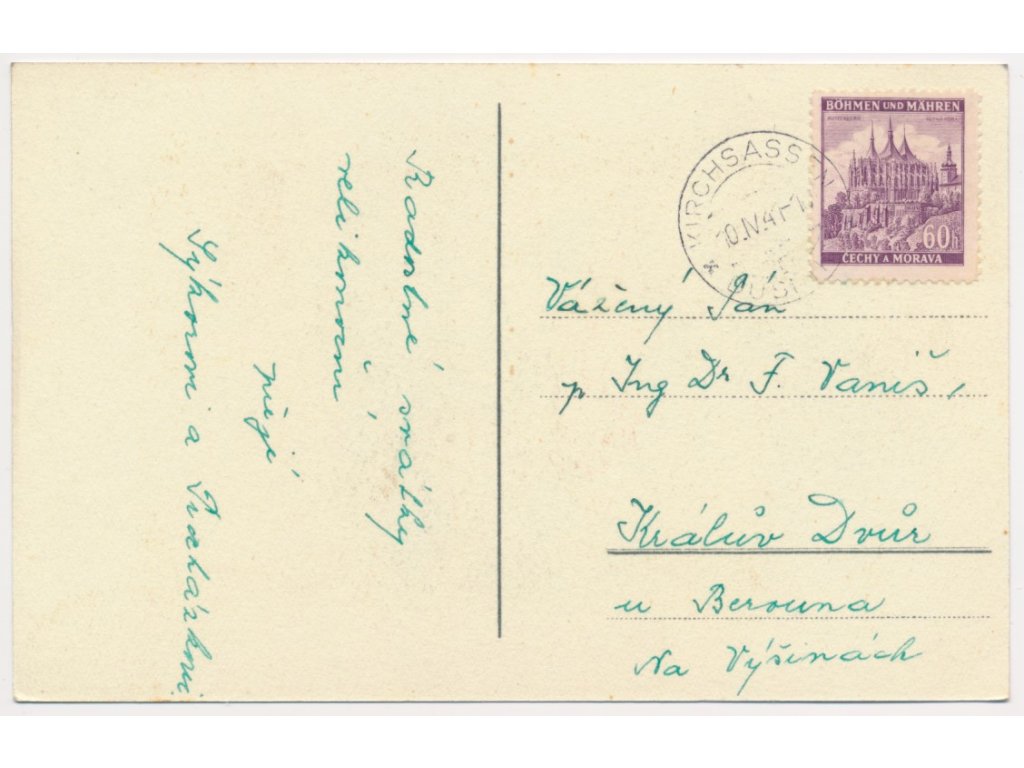 Radostné svátky
velikonoční
přejí
Sýkorovi a
BÖHMEN UND MÄHREN
60h
ČECHY A MORAVA
KIRCHSASS
Vážený Pán
p Ing Dr F. Vaniš,
Králův Dvůr
u Berouna
Na Výšinách